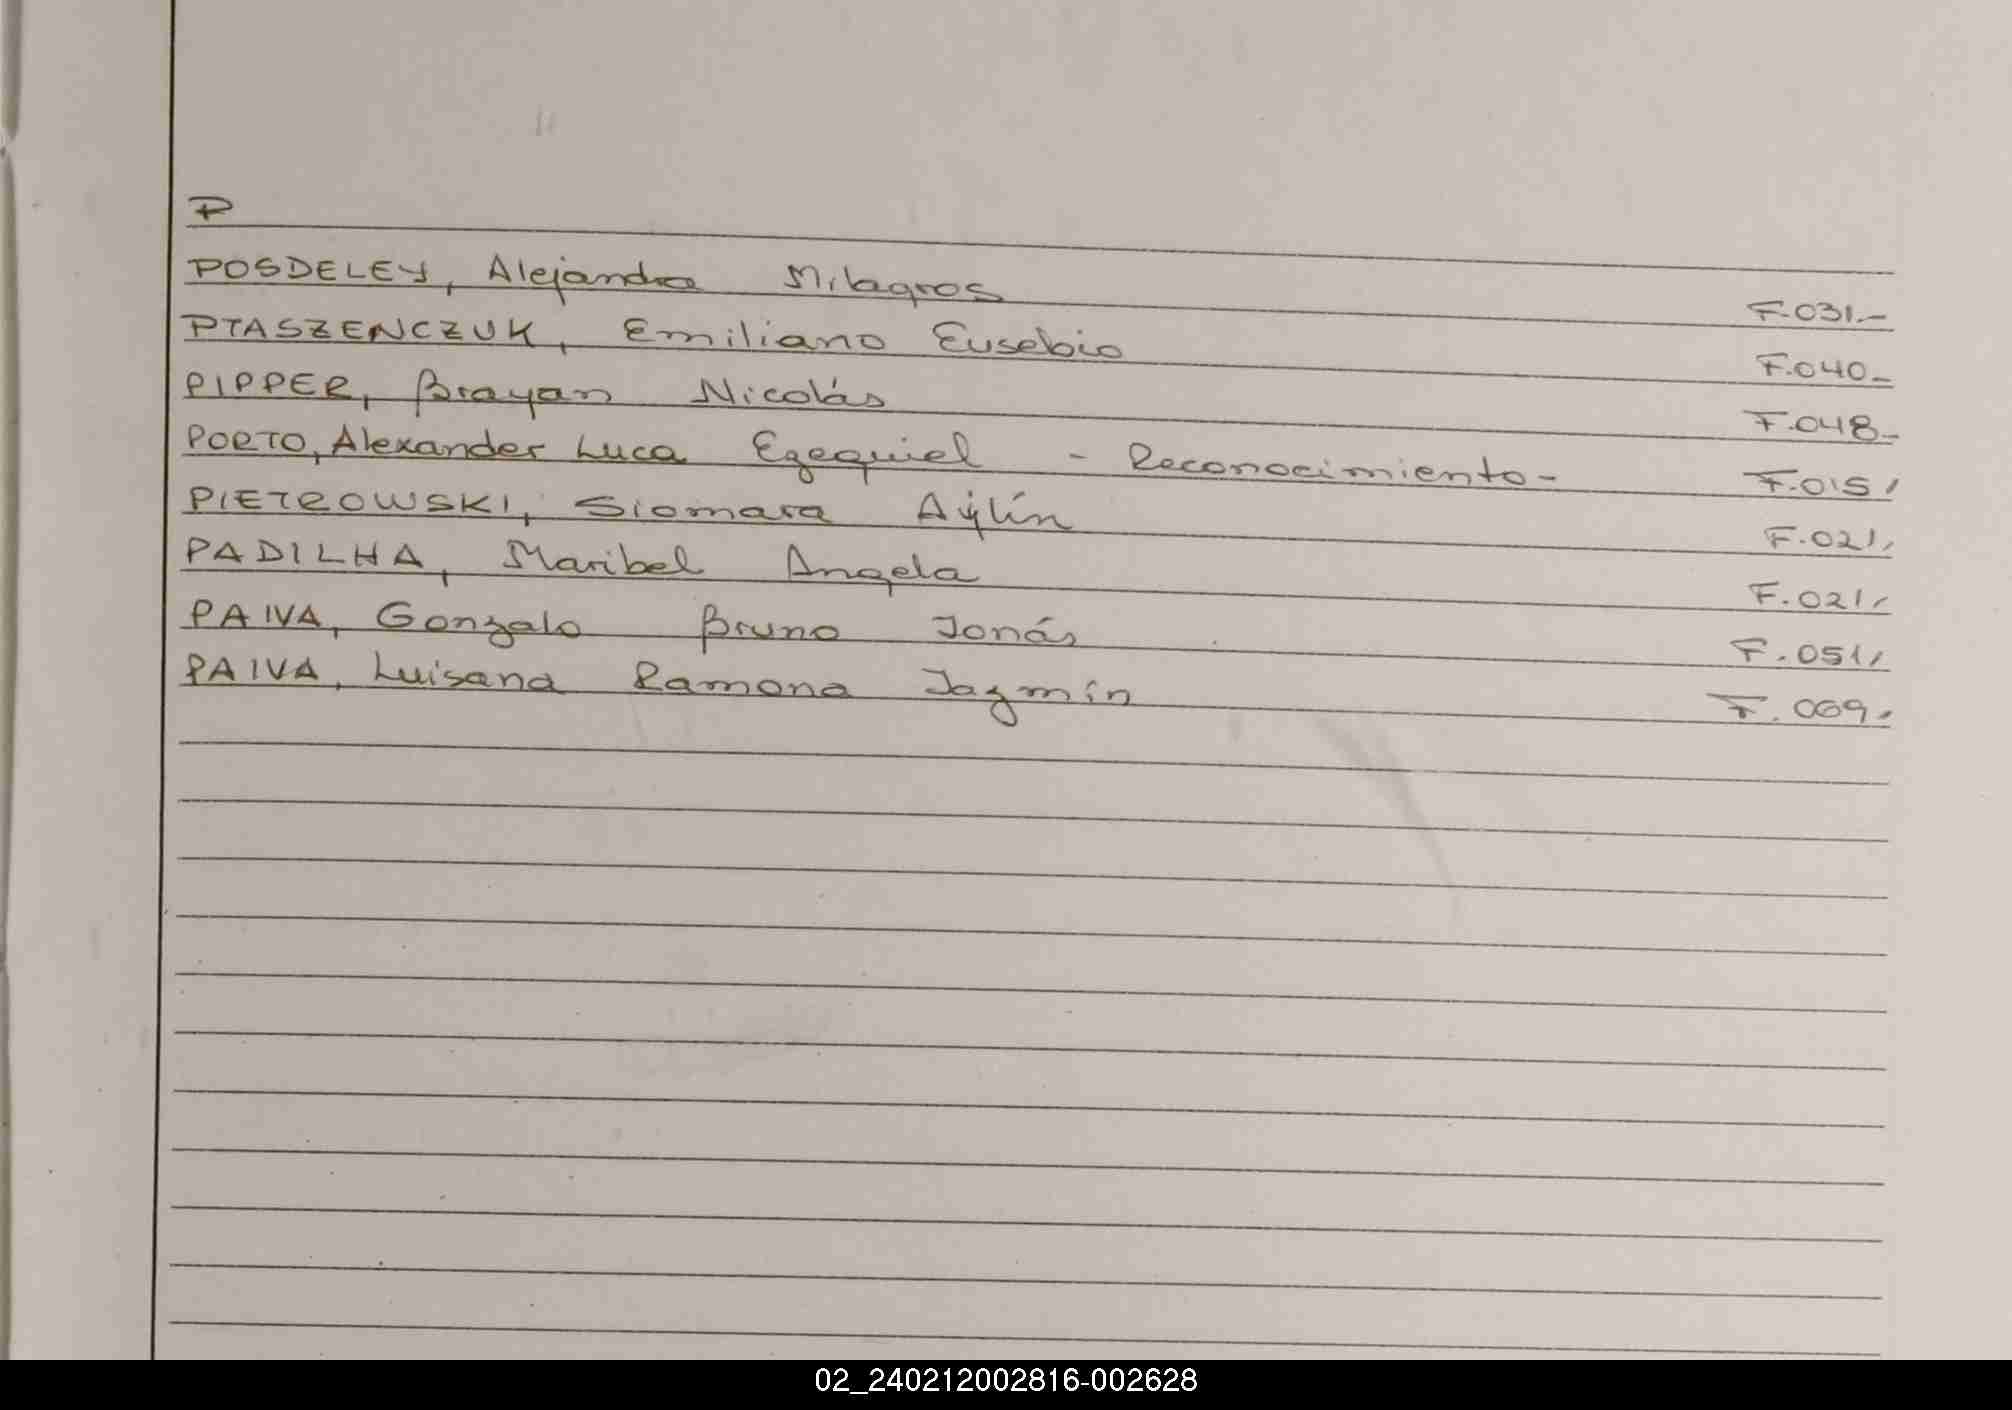 P
POSDELEY, Alejandra Milagros F.031.-
PTASZENCZUK, Emiliano Eusebio F.040-
PIPPER, Brayan Nicolás F.048-
PORTO, Alexander Luca Ezequiel - Reconocimiento- F.015/
PIETROWSKI, Siomara Aylín F.021,
PADILHA, Maribel Angela F.021,
PAIVA, Gonzalo Bruno Jonás F.051,
PAIVA, Luisana Ramona Jazmín F.069.
02_240212002816-002628